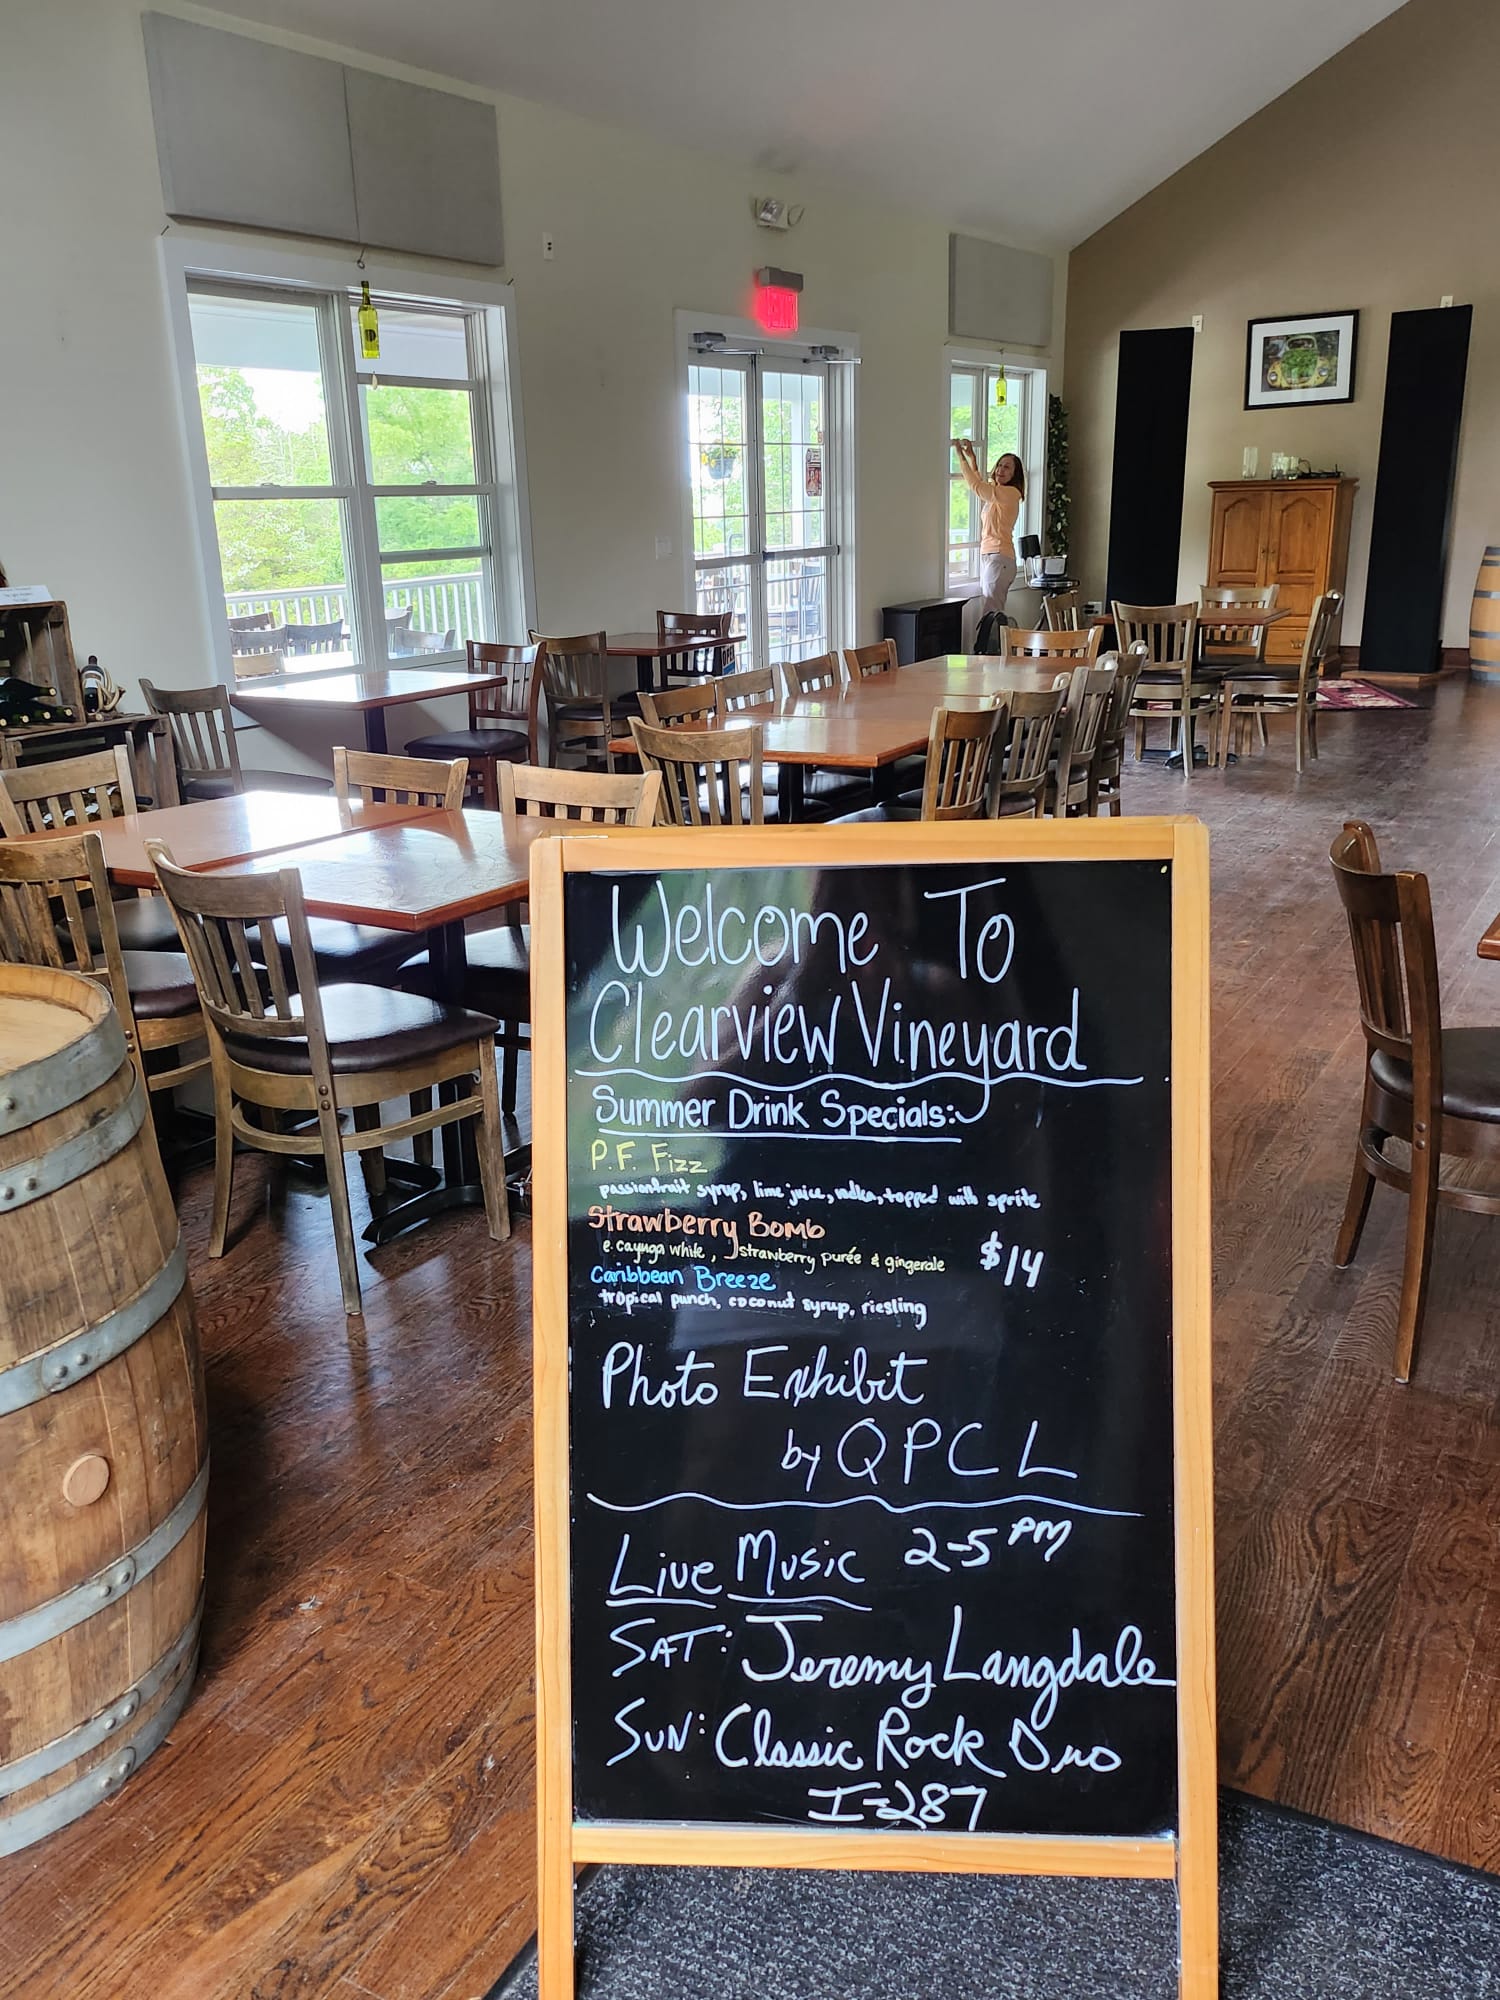 EXIT
Welcome To
Clearview Vineyard
Summer Drink Specials:
P.F. Fizz
passionfruit syrup, lime juice, vodka, topped with sprite
Strawberry Bomb
e. cayuga white, strawberry purée & gingerale
$14
Caribbean Breeze
tropical punch, coconut syrup, riesling
Photo Exhibit
by QPCL
Live Music 2-5 PM
SAT: Jeremy Langdale
SUN: Classic Rock Duo
I-287